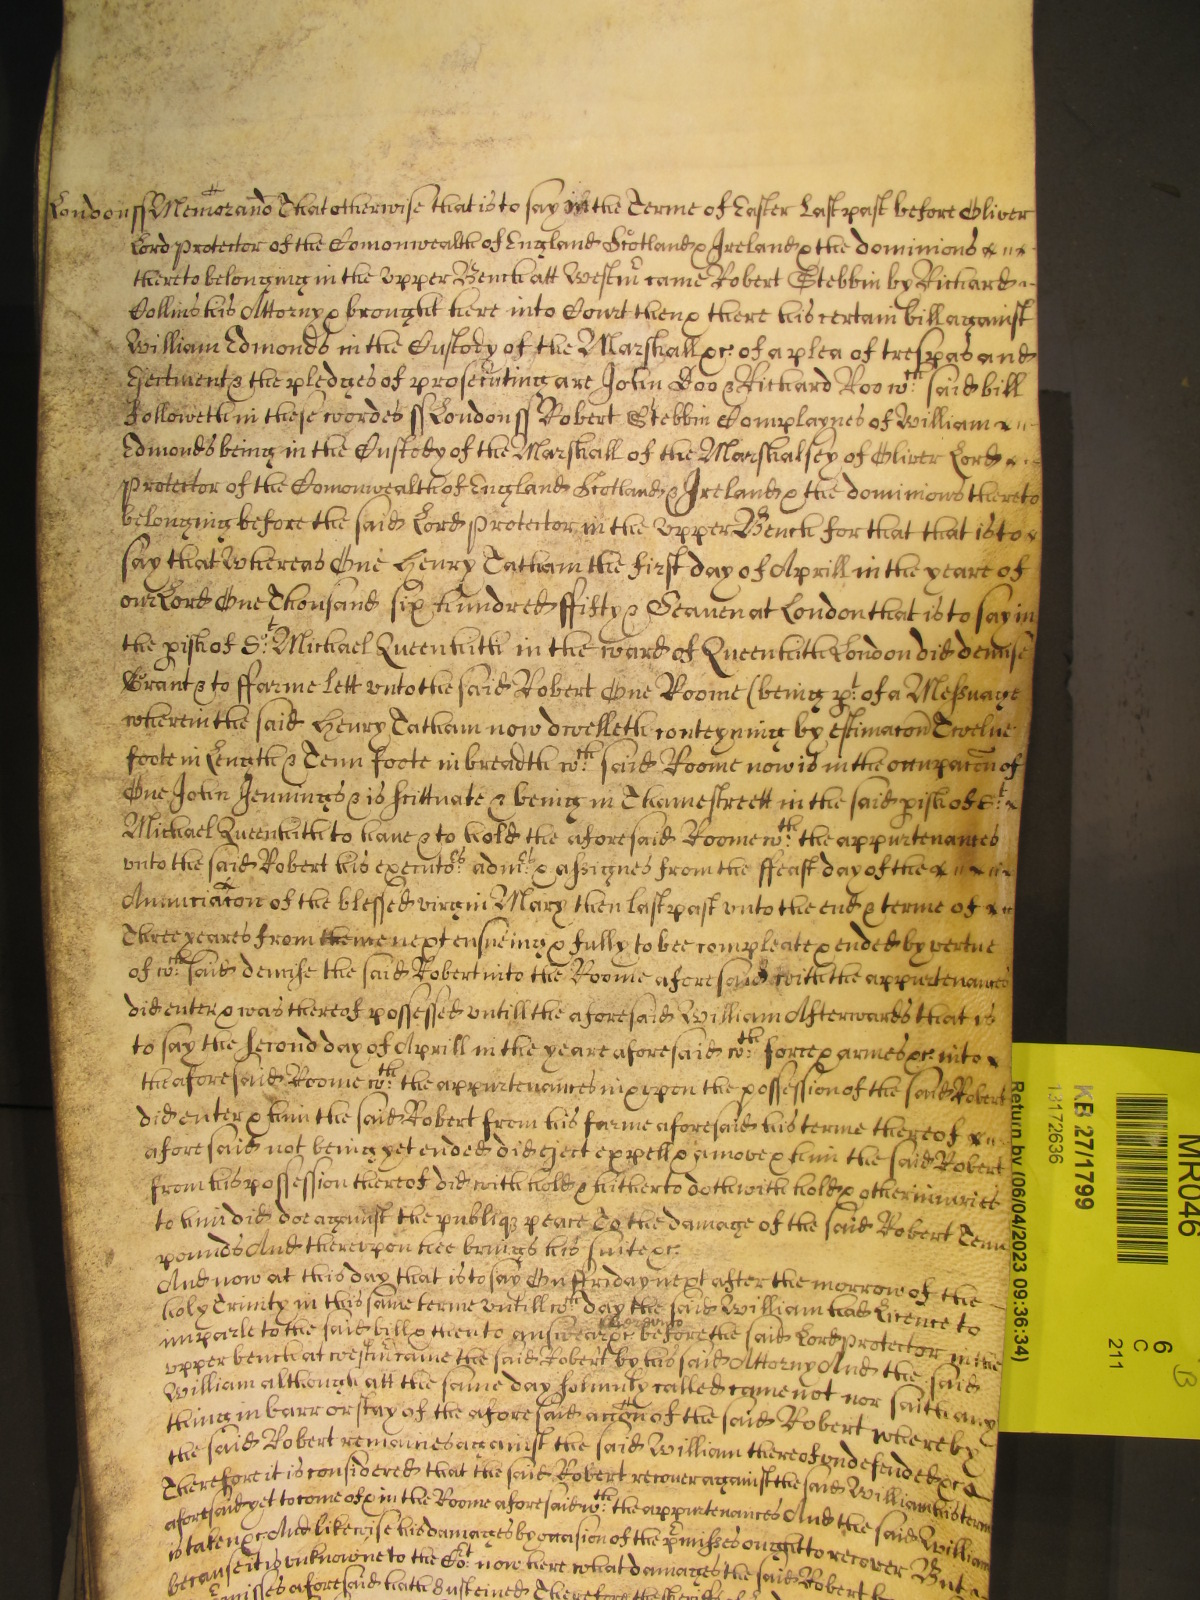 London ss Memorand That otherwise that is to say in the Terme of Easter Last past before Oliver
Lord Protector of the Comonwealth of England Scotland & Ireland & the dominions
thereto belonging in the Upper Bench att Westm came Robert Stebbin by Richard
Collins his Attorny & brought here into Court then & there his certain bill against
William Edmonds in the Custody of the Marshall &c of a plea of trespas and
Ejectment & the pledges of prosecuting are John Doo & Richard Roo wth said bill
followeth in these wordes ss London ss Robert Stebbin Complaynes of William
Edmonds being in the Custody of the Marshall of the Marshalsey of Oliver Lord
Protector of the Comonwealth of England Scotland & Ireland & the dominions thereto
belonging before the said Lord Protector in the Upper Bench for that that is to
say that Whereas One Henry Tatham the first day of Aprill in the yeare of
our Lord One Thousand six hundred ffifty & Seaven at London that is to say in
the pish of St Michael Queenhith in the ward of Queenhith London did demise
Grant & to ffarme lett unto the said Robert One Roome (being pt of a Messuage
wherein the said Henry Tatham now dwelleth conteyning by estimacon Twelve
foote in Length & Tenn foote in breadth wth said Roome now is in the occupacon of
One John Jennings & is scittuate & being in Thamestreett in the said pish of St
Michael Queenhith to have & to hold the aforesaid Roome wth the appurtenances
unto the said Robert his executors admrs & assignes from the ffeast day of the
Anunciacon of the blessed virgin Mary then last past unto the end & terme of
Three yeares from thence next ensueing & fully to bee compleate & ended by vertue
of wch said demise the said Robert into the Roome aforesaid with the appurtenances
did enter & was thereof possessed untill the aforesaid William Afterwards that is
to say the second day of Aprill in the yeare aforesaid wth force & armes &c into
the aforesaid Roome wth the appurtenances in & upon the possession of the said Robert
did enter & him the said Robert from his farme aforesaid his terme thereof
aforesaid not being yet ended did eject expell & amove & him the said Robert
from his possession thereof did withhold & hitherto doth withhold & other injuries
to him did doe against the publiq peace To the damage of the said Robert Tenn
pounds And thereupon hee brings his suite &c
And now at this day that is to say On ffriday next after the morrow of the
holy Trinity in this same terme untill wch day the said William had Licence to
imparle to the said bill & then to answear &c before the said Lord Protector in the
upper bench at westm came the said Robert by his said Attorny And the said
William although att the same day solemnly called came not nor saith any
thing in barr or stay of the aforesaid accon of the said Robert whereby
the said Robert remaines against the said William thereof undefended &c
Therefore it is considered that the said Robert recover against the said William his term
aforesaid yet to come of & in the Roome aforesaid wth the appurtenances And the said William
is taken &c And likewise his damages by occasion of the pmisses ought to recover But
because it is unknowne to the Cot now here what damages the said Robert
pmisses aforesaid hath susteined Therefore the
MR046
KB 27/1799
13172636
Return by (06/04/2023 09:36:34)
6
C
211